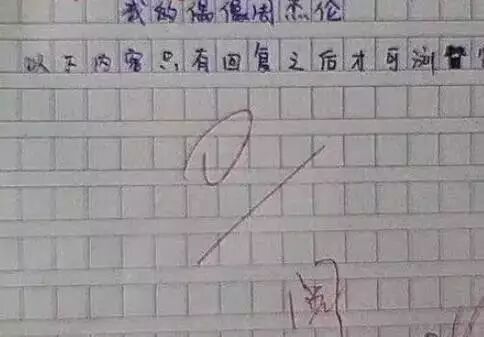 我的偶像周杰伦
以下内容只有回复之后才可浏览
阅